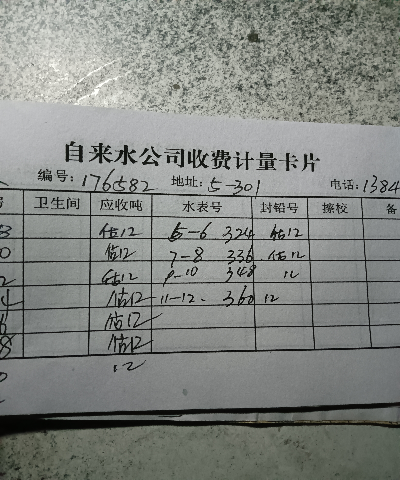 自来水公司收费计量卡片
编号: 176582 地址: 5-301 电话: 1384
号 卫生间 应收吨 水表号 封铅号 擦校 备
估12 5-6 324 估12
0 估12 7-8 336 估12
2 估12 9-10 348 12
4 估12 11-12. 360 12
估12
8 估12
12